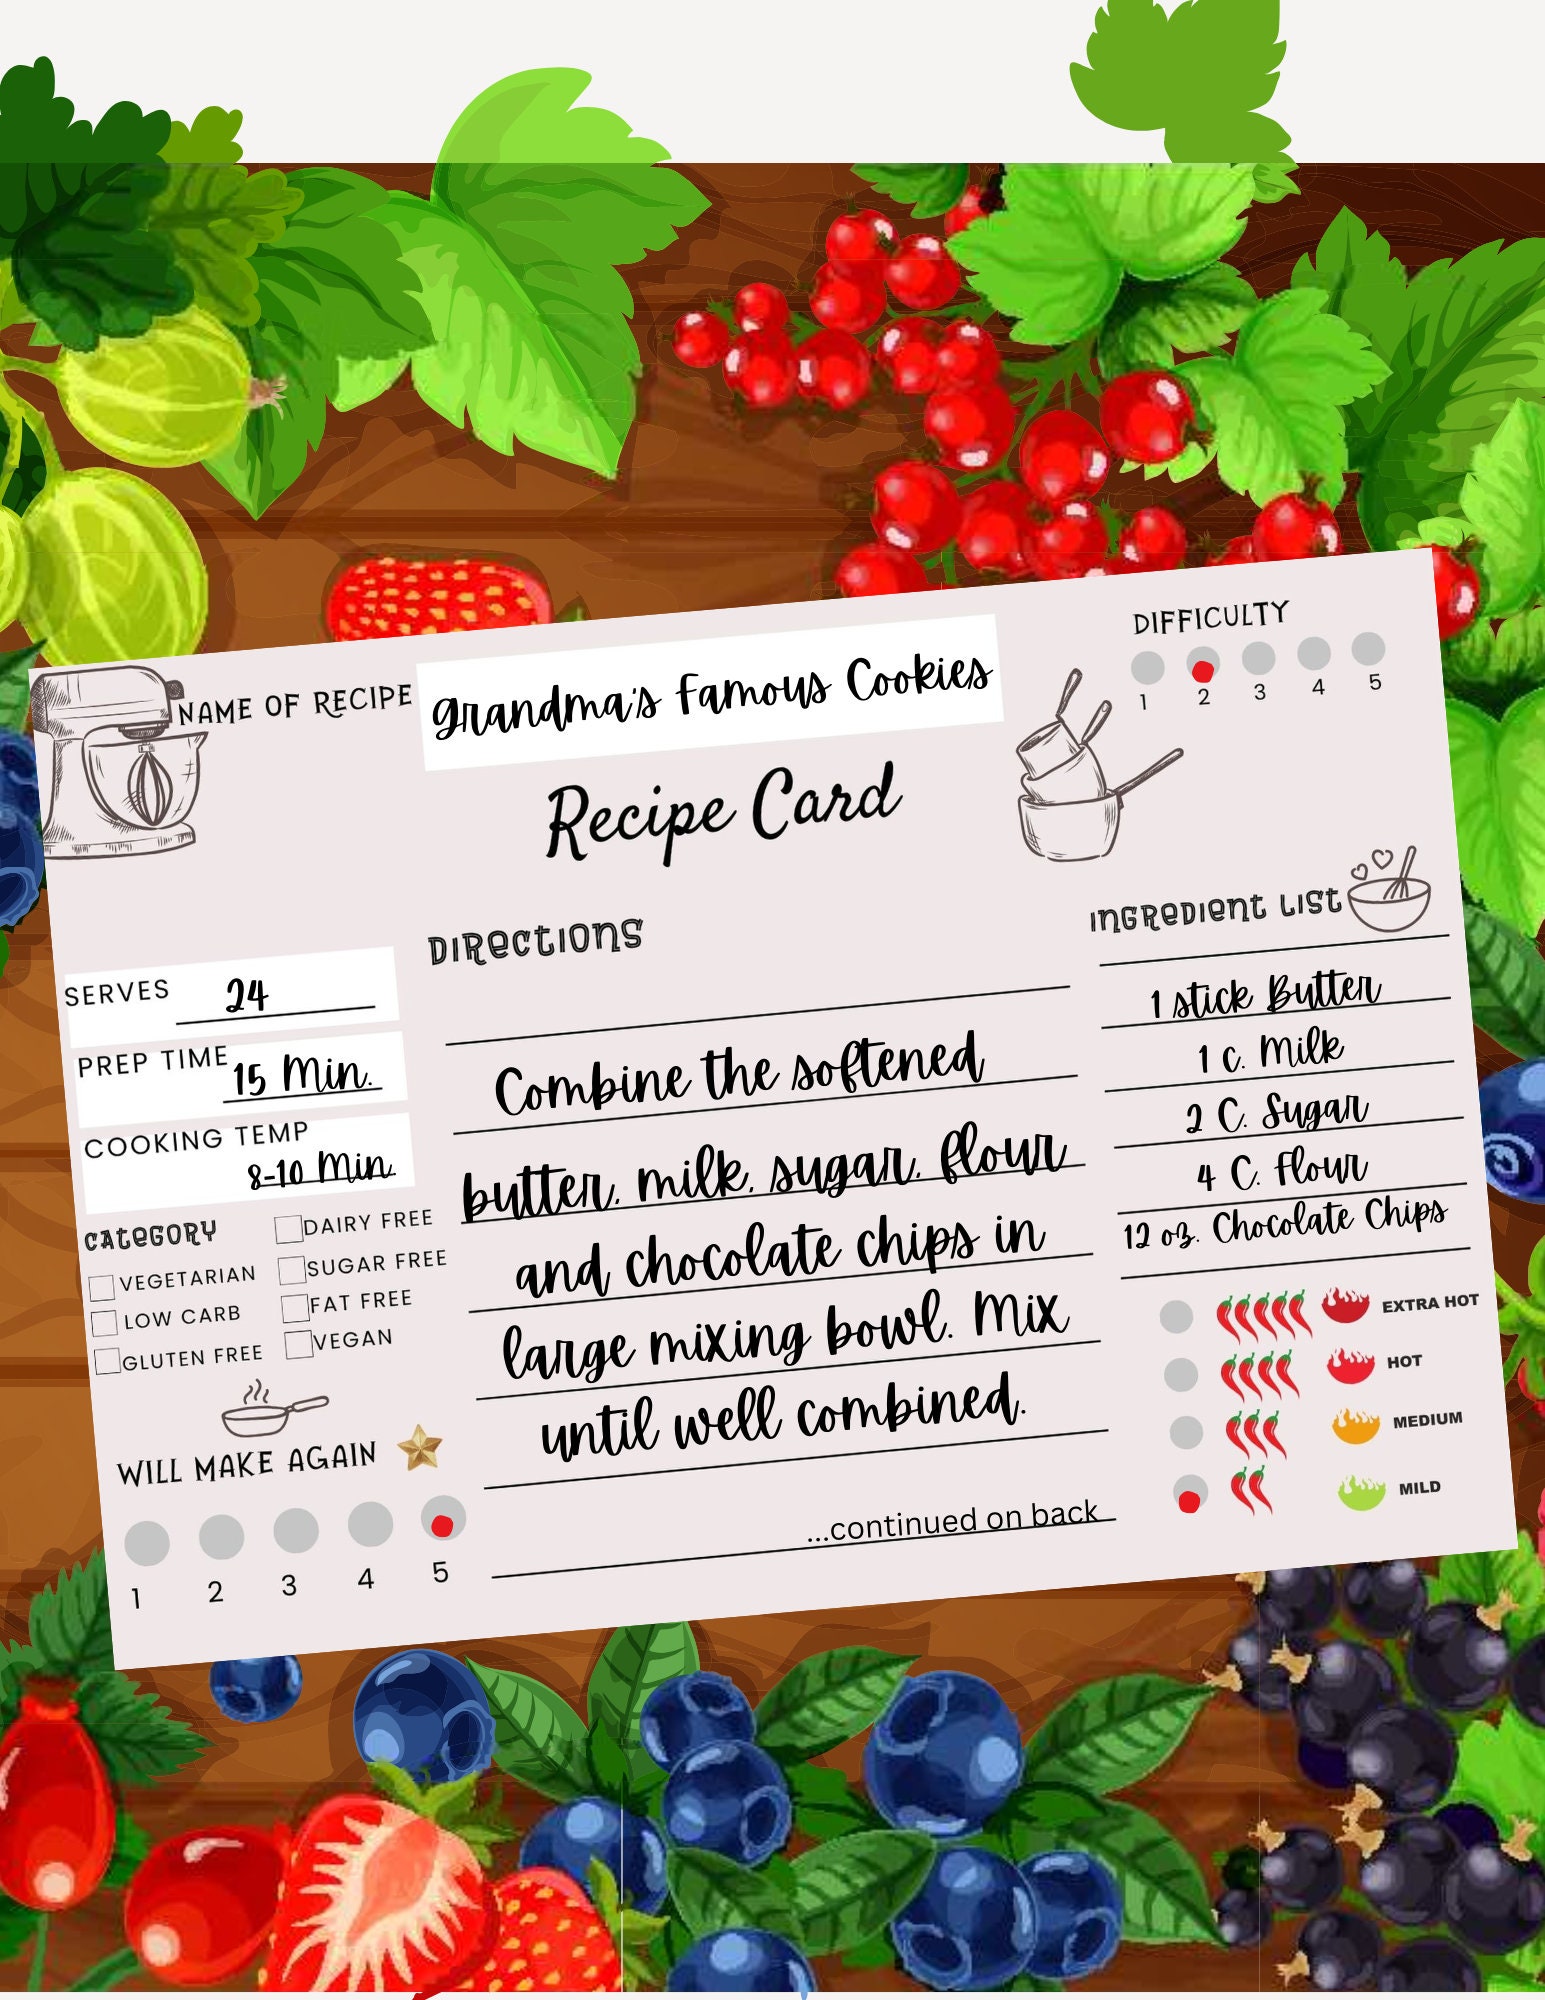 NAME OF RECIPE Grandma's Famous Cookies
DIFFICULTY
1 2 3 4 5
Recipe Card
SERVES 24
PREP TIME 15 Min.
COOKING TEMP
8-10 Min.
CATEGORY
VEGETARIAN
LOW CARB
GLUTEN FREE
DAIRY FREE
SUGAR FREE
FAT FREE
VEGAN
WILL MAKE AGAIN
1 2 3 4 5
DIRECTIONS
Combine the softened
butter, milk, sugar, flour
and chocolate chips in
large mixing bowl. Mix
until well combined.
...continued on back
INGREDIENT LIST
1 stick Butter
1 c. Milk
2 C. Sugar
4 C. Flour
12 oz. Chocolate Chips
EXTRA HOT
HOT
MEDIUM
MILD